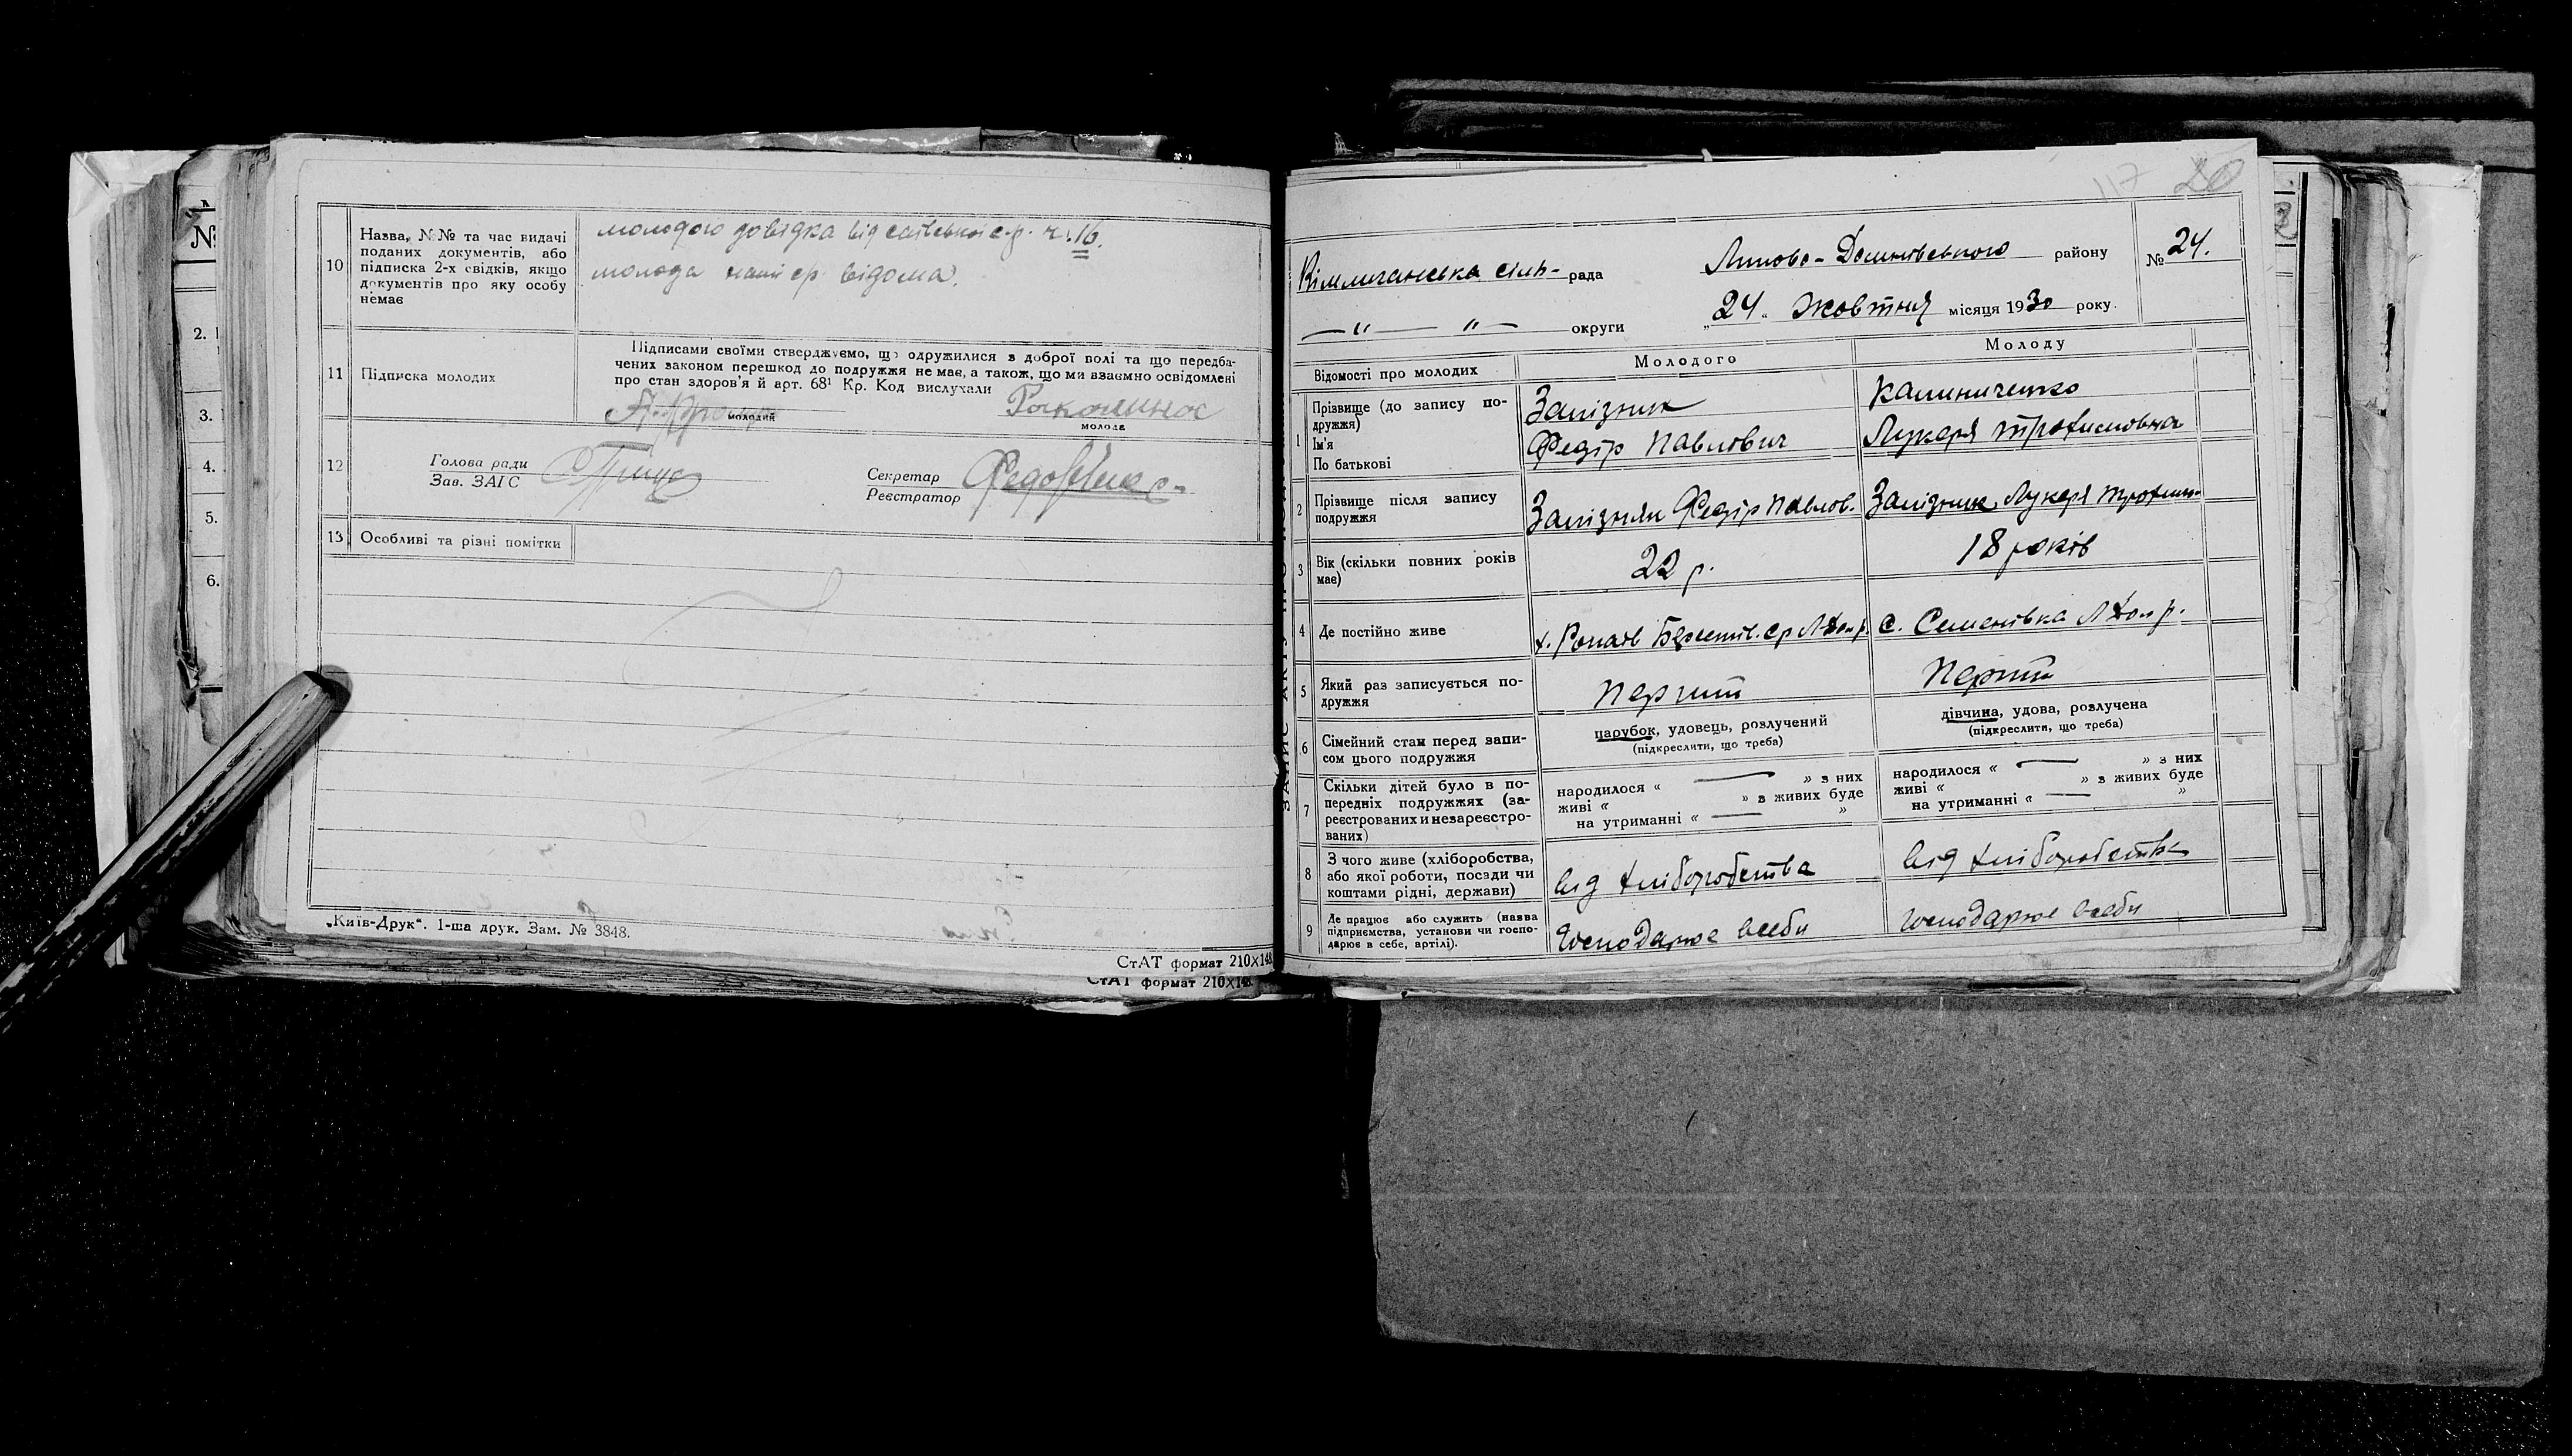 10
Назва, №№ та час видачі
поданих документів, або
підписка 2-х свідків, якщо
документів про яку особу
немає
молодого довідка від с.р. ч. 16.
молода нашій ср відома.
11
Підписка молодих
Підписами своїми стверджуємо, що одружилися з доброї волі та що передба-
чених законом перешкод до подружжя немає, а також, що ми взаємно освідомлені
про стан здоров'я й арт. 68¹ Кр. Код вислухали
молодий
молода
12
Голова ради
Зав. ЗАГС
Секретар
Реєстратор
13
Особливі та різні помітки
„Київ-Друк“. 1-ша друк. Зам. № 3848.
СтАТ формат 210×148
СтАТ формат 210×148
№
2.
3.
4.
5.
6.
117 20
сіль- рада
Липово-Долинського району
№ 24.
—〃— 〃— округи
„24“ Жовтня місяця 1930 року.
Відомості про молодих
Молодого
Молоду
1
Прізвище (до запису по-
дружжя)
Ім'я
По батькові
Залізняк
Федір Павлович
Калиниченко
Лукеря Трохимовна
2
Прізвище після запису
подружжя
Залізняк Федір Павлов.
Залізняк Лукеря Трохим.
3
Вік (скільки повних років
має)
22 р.
18 років
4
Де постійно живе
х. ср Л Дол р.
с. Семенівка Л Дол р.
5
Який раз записується по-
дружжя
Перший
Перший
6
Сімейний стан перед запи-
сом цього подружжя
парубок, удовець, розлучений
(підкреслити, що треба)
дівчина, удова, розлучена
(підкреслити, що треба)
7
Скільки дітей було в по-
передніх подружжях (за-
реєстрованих и незареєстро-
ваних)
народилося « — » з них
живі « » з живих буде
на утриманні « — »
народилося « — » з них
живі « » з живих буде
на утриманні « — »
8
З чого живе (хліборобства,
або якої роботи, посади чи
коштами рідні, держави)
від хліборобства
від хліборобства
9
Де працює або служить (назва
підприємства, установи чи госпо-
дарює в себе, артілі).
Господарює всеби
Господарює всеби